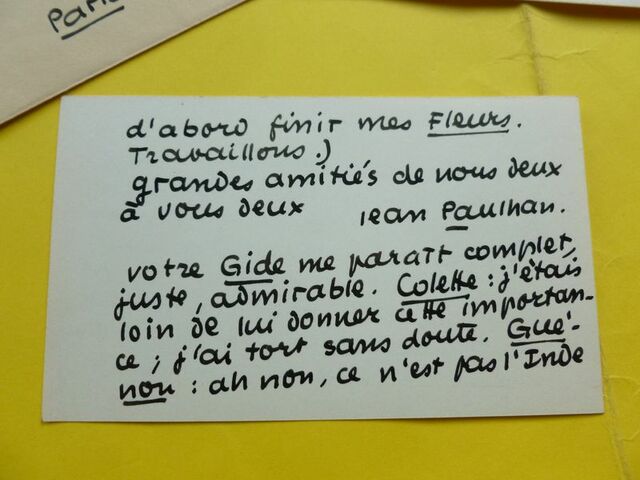 Paris
d'abord finir mes Fleurs.
Travaillons.)
grandes amitiés de nous deux
à vous deux jean Paulhan.
votre Gide me paraît complet,
juste, admirable. Colette : j'étais
loin de lui donner cette importan-
ce ; j'ai tort sans doute. Gué'-
non : ah non, ce n'est pas l'Inde